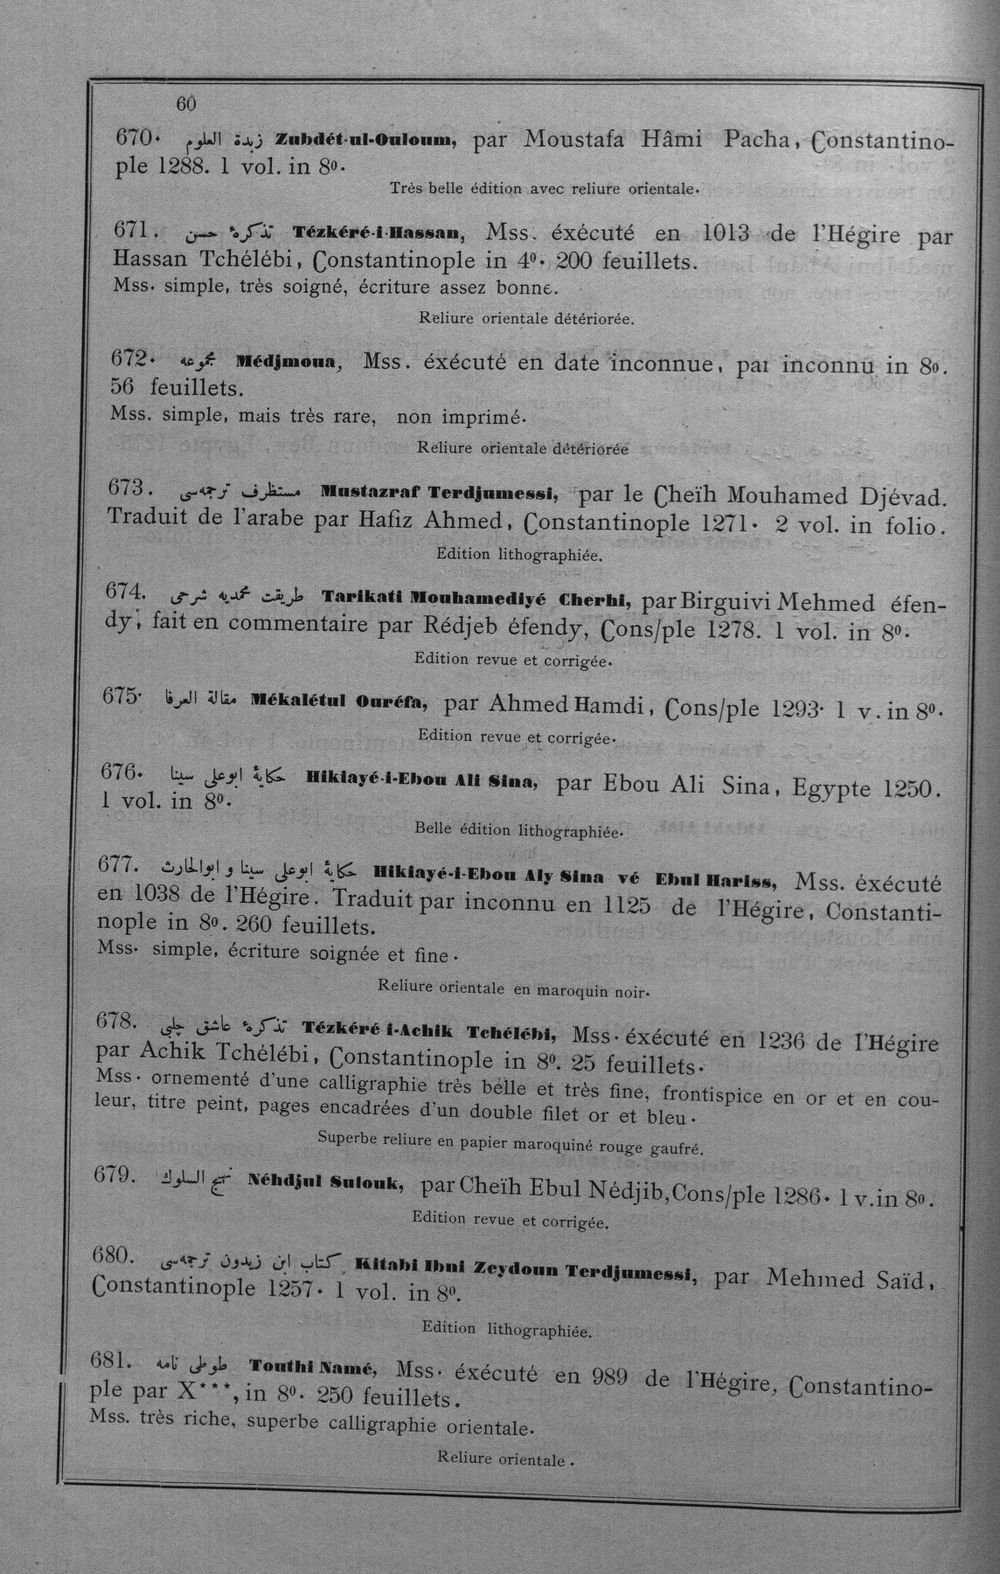 60
670. زبدة العلوم Zubdét-ul-Ouloum, par Moustafa Hâmi Pacha, Çonstantino-
ple 1288. 1 vol. in 8º.
Très belle édition avec reliure orientale.
671. تذكرهٔ حسن Tézkéré-i-Hassan, Mss. éxécuté en 1013 de l'Hégire par
Hassan Tchélébi, Çonstantinople in 4º. 200 feuillets.
Mss. simple, très soigné, écriture assez bonne.
Reliure orientale détériorée.
672. مجموعه Médjmoua, Mss. éxécuté en date inconnue, par inconnu in 8º.
56 feuillets.
Mss. simple, mais très rare, non imprimé.
Reliure orientale détériorée
673. مستظرف ترجمه‌سى Mustazraf Terdjumessi, par le Çheïh Mouhamed Djévad.
Traduit de l'arabe par Hafiz Ahmed, Çonstantinople 1271. 2 vol. in folio.
Edition lithographiée.
674. طريقت محمديه شرحى Tarikati Mouhamediyé Cherhi, par Birguivi Mehmed éfen-
dy, fait en commentaire par Rédjeb éfendy, Çons/ple 1278. 1 vol. in 8º.
Edition revue et corrigée.
675. مقالة العرفا Mékalétul Ouréfa, par Ahmed Hamdi, Çons/ple 1293. 1 v. in 8º.
Edition revue et corrigée.
676. حكايهٔ ابوعلى سينا Hikiayé-i-Ebou Ali Sina, par Ebou Ali Sina, Egypte 1250.
1 vol. in 8º.
Belle édition lithographiée.
677. حكايهٔ ابوعلى سينا و ابوالحارث Hikiayé-i-Ebou Aly Sina vé Ebul Hariss, Mss. éxécuté
en 1038 de l'Hégire. Traduit par inconnu en 1125 de l'Hégire, Constanti-
nople in 8º. 260 feuillets.
Mss. simple, écriture soignée et fine.
Reliure orientale en maroquin noir.
678. تذكرهٔ عاشق چلبى Tézkéré i-Achik Tchélébi, Mss. éxécuté en 1236 de l'Hégire
par Achik Tchélébi, Çonstantinople in 8º. 25 feuillets.
Mss. ornementé d'une calligraphie très bélle et très fine, frontispice en or et en cou-
leur, titre peint, pages encadrées d'un double filet or et bleu.
Superbe reliure en papier maroquiné rouge gaufré.
679. نهج السلوك Néhdjul Sulouk, par Cheïh Ebul Nédjib, Cons/ple 1286. 1 v. in 8º.
Edition revue et corrigée.
680. كتاب ابن زيدون ترجمه‌سى Kitabi Ibni Zeydoun Terdjumessi, par Mehmed Saïd,
Çonstantinople 1257. 1 vol. in 8º.
Edition lithographiée.
681. طوطى نامه Touthi Namé, Mss. éxécuté en 989 de l'Hégire, Çonstantino-
ple par X***, in 8º. 250 feuillets.
Mss. très riche, superbe calligraphie orientale.
Reliure orientale.